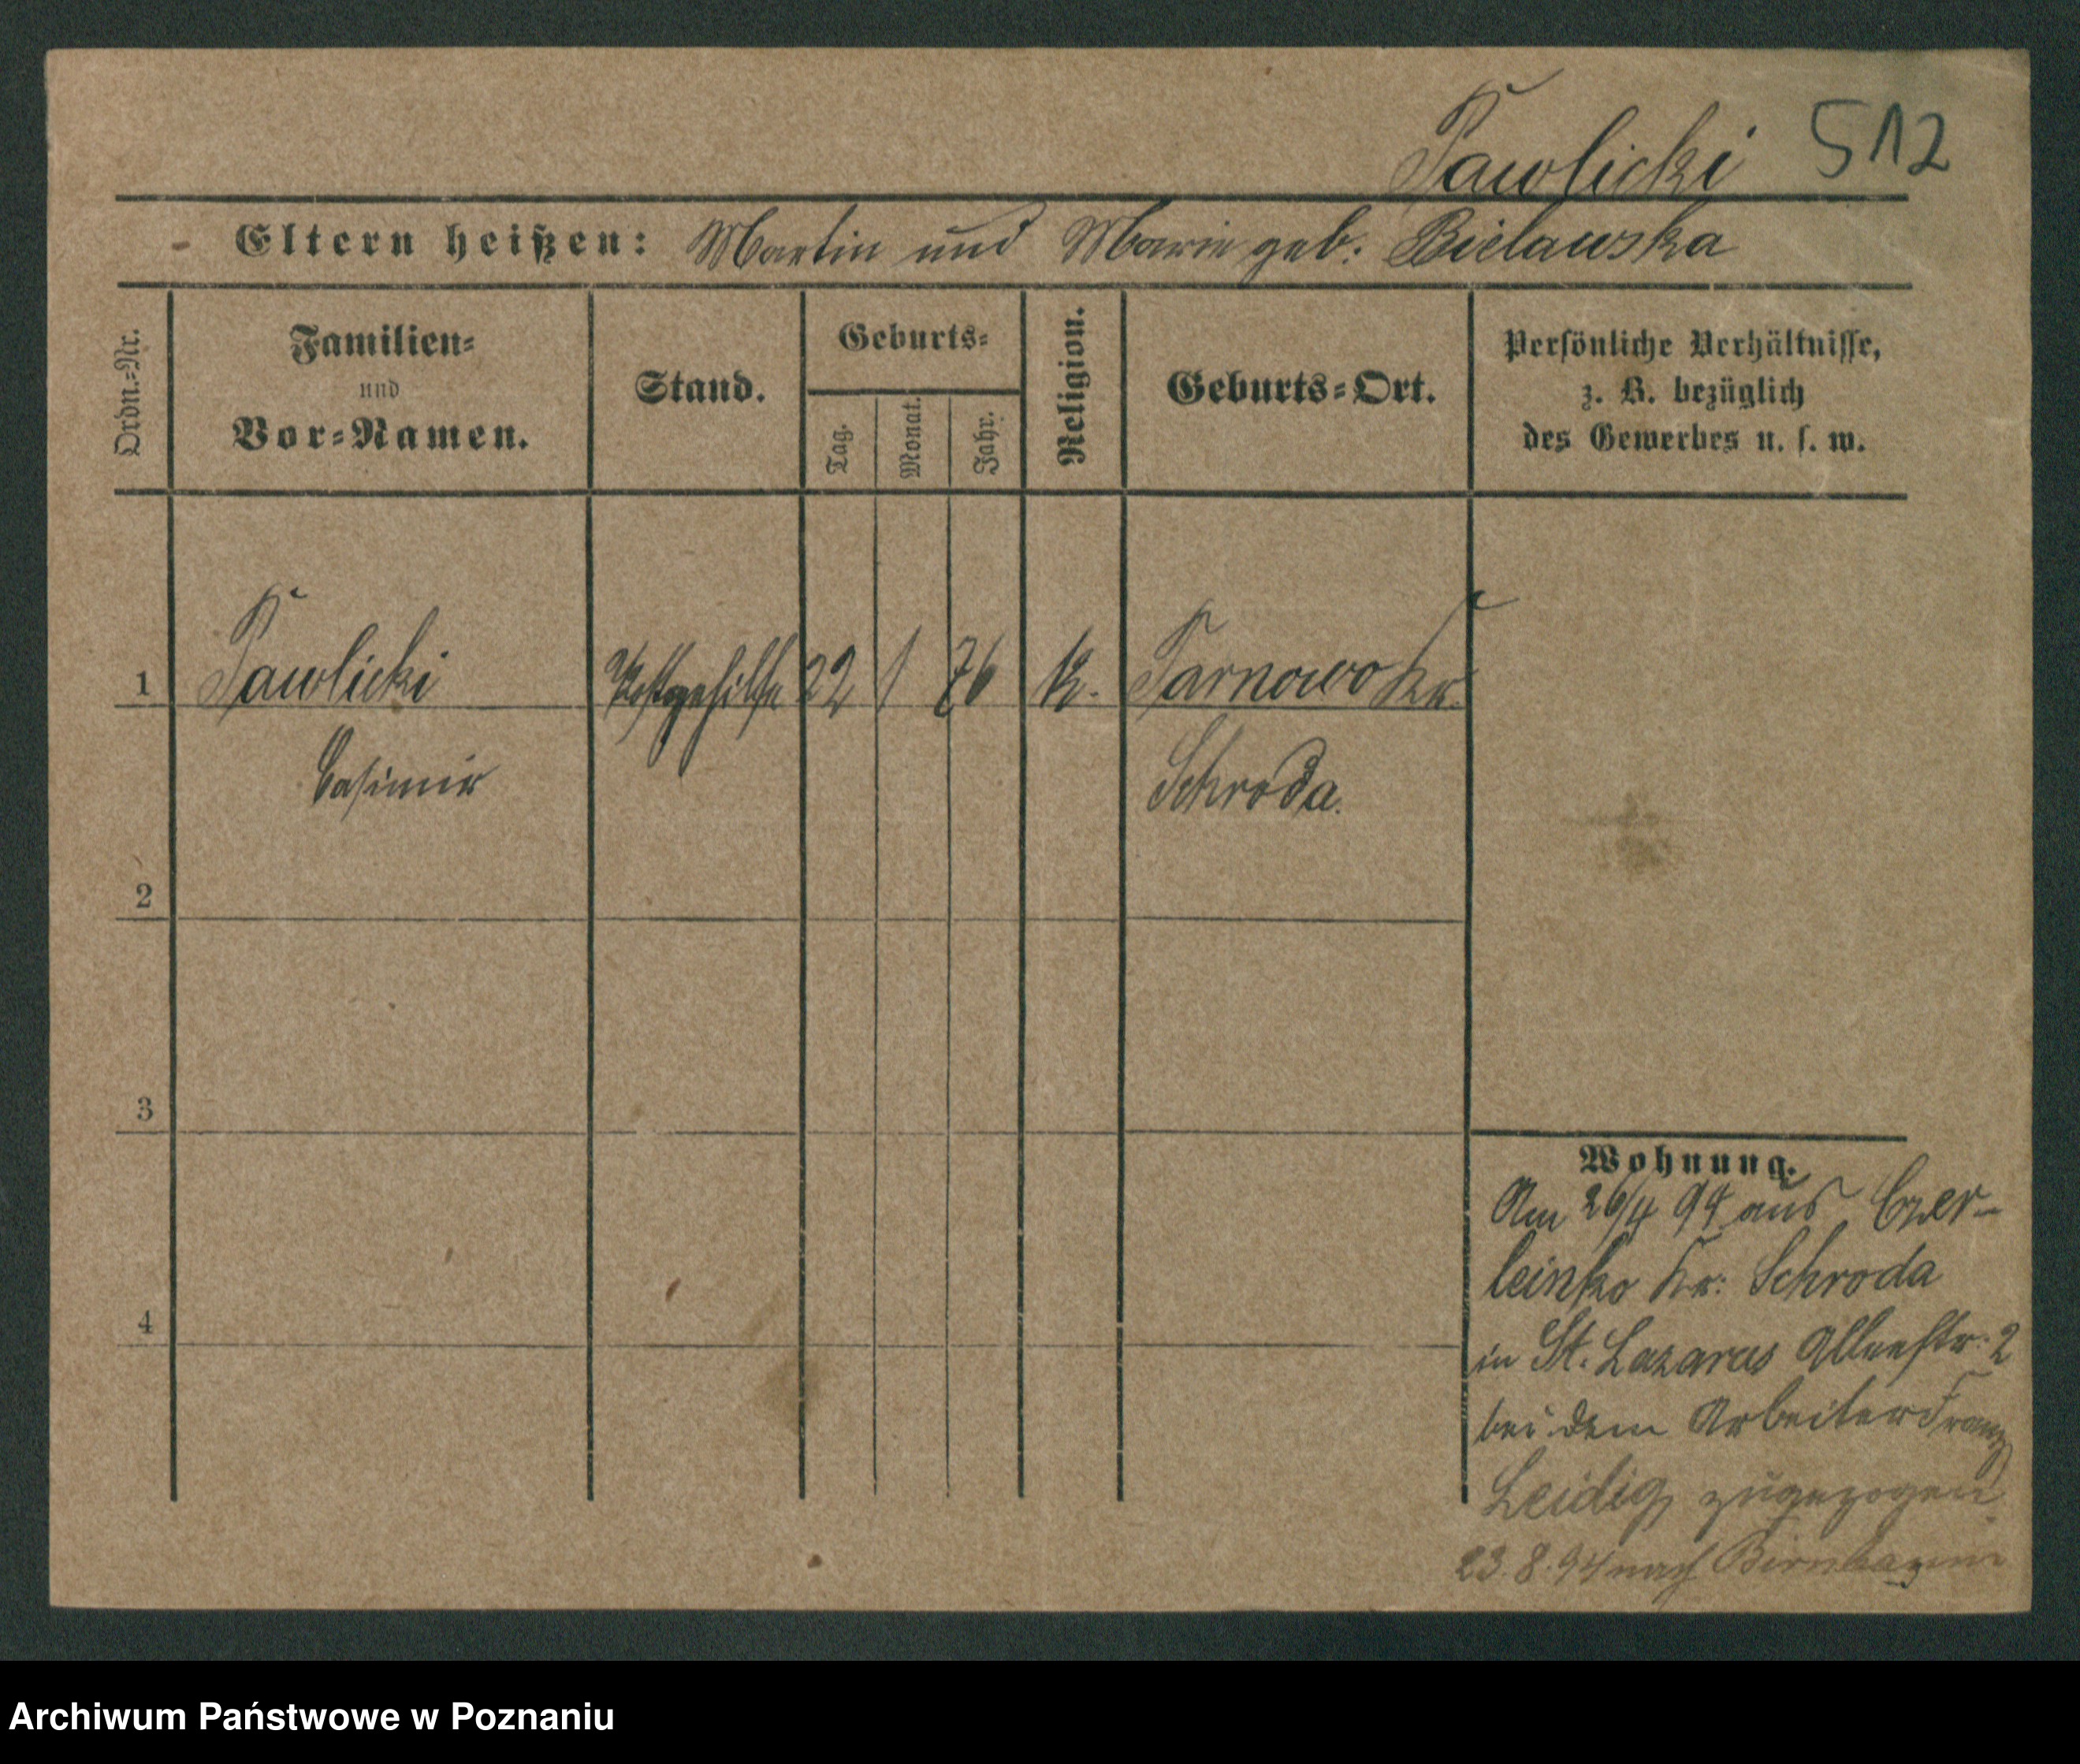 Pawlicki 512
Eltern heißen: Martin und Marie geb: Bielawska
Ordn.-Nr.
Familien-
und
Vor-Namen.
Stand.
Geburts-
Tag.
Monat.
Jahr.
Religion.
Geburts-Ort.
Persönliche Verhältnisse,
z. B. bezüglich
des Gewerbes u. s. w.
1 Pawlicki Postgehilfe 22 1 76 k. Tarnowo Kr.
Casimir Schroda.
2
3
4
Wohnung.
Am 26/4 94 aus Czer-
leinko Kr: Schroda
in St. Lazarus Alleestr: 2
bei dem Arbeiter Franz
Leidig zugezogen
23. 8. 94 nach
Archiwum Państwowe w Poznaniu